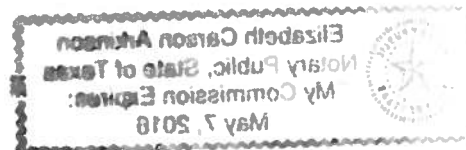 Elizabeth Carson Arkman
Notary Public, State of Texas
My Commission Expires:
May 7, 2016